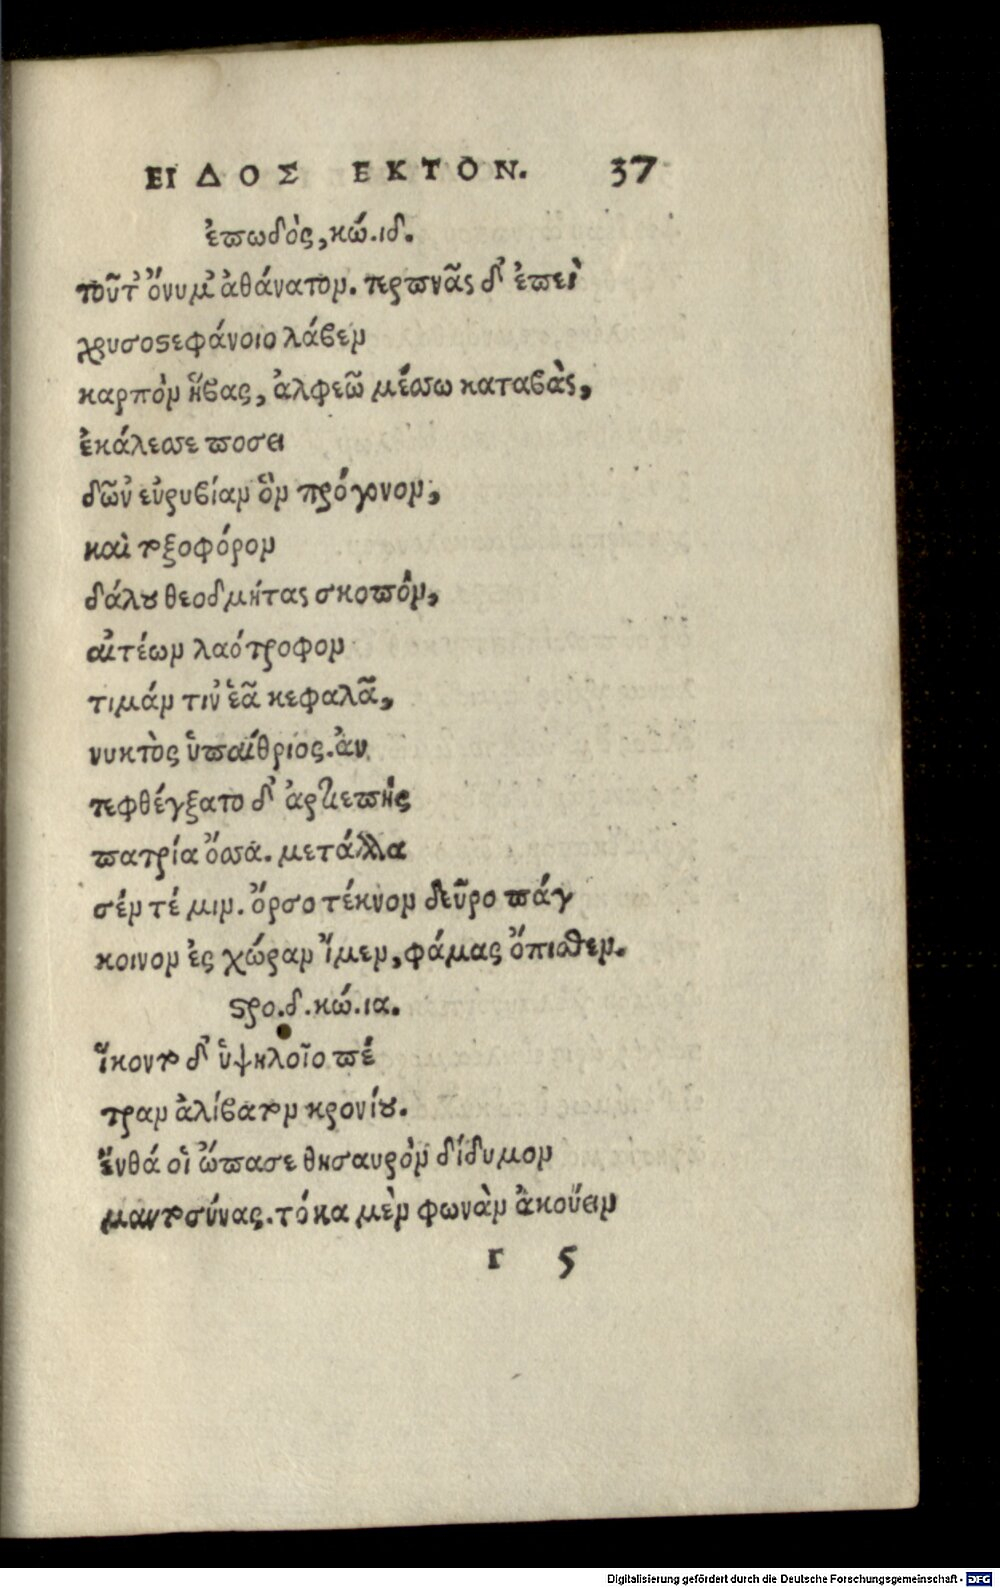 ΕΙΔΟΣ ΕΚΤΟΝ. 37
ἐπωδὸς, κώ.ιδ.
τοῦτ' ὄνυμ' ἀθάνατον. τερπνᾶς δ' ἐπεὶ
χρυσοστεφάνοιο λάβεν
καρπὸν ἥβας, ἀλφεῶ μέσσω καταβὰς,
ἐκάλεσσε ποσει
δῶν' εὐρυβίαν ὃν πρόγονον,
καὶ τοξοφόρον
δάλου θεοδμήτας σκοπὸν,
αἰτέων λαότροφον
τιμάν τιν' ἑᾶ κεφαλᾶ,
νυκτὸς ὑπαίθριος. ἀν
τεφθέγξατο δ' ἀρτιεπὴς
πατρία ὄσσα. μετάλλα
σέν τέ μιν. ὄρσο τέκνον δεῦρο πάγ
κοινον ἐς χώραν ἴμεν, φάμας ὄπισθεν.
στρο.δ.κώ.ια.
ἵκοντο δ' ὑψηλοῖο πέ
τραν ἀλίβατον κρονίου.
ἔνθά οἱ ὤπασε θησαυρὸν δίδυμον
μαντοσύνας. τόκα μὲν φωνὰν ἀκούειν
r 5
Digitalisierung gefördert durch die Deutsche Forschungsgemeinschaft - DFG